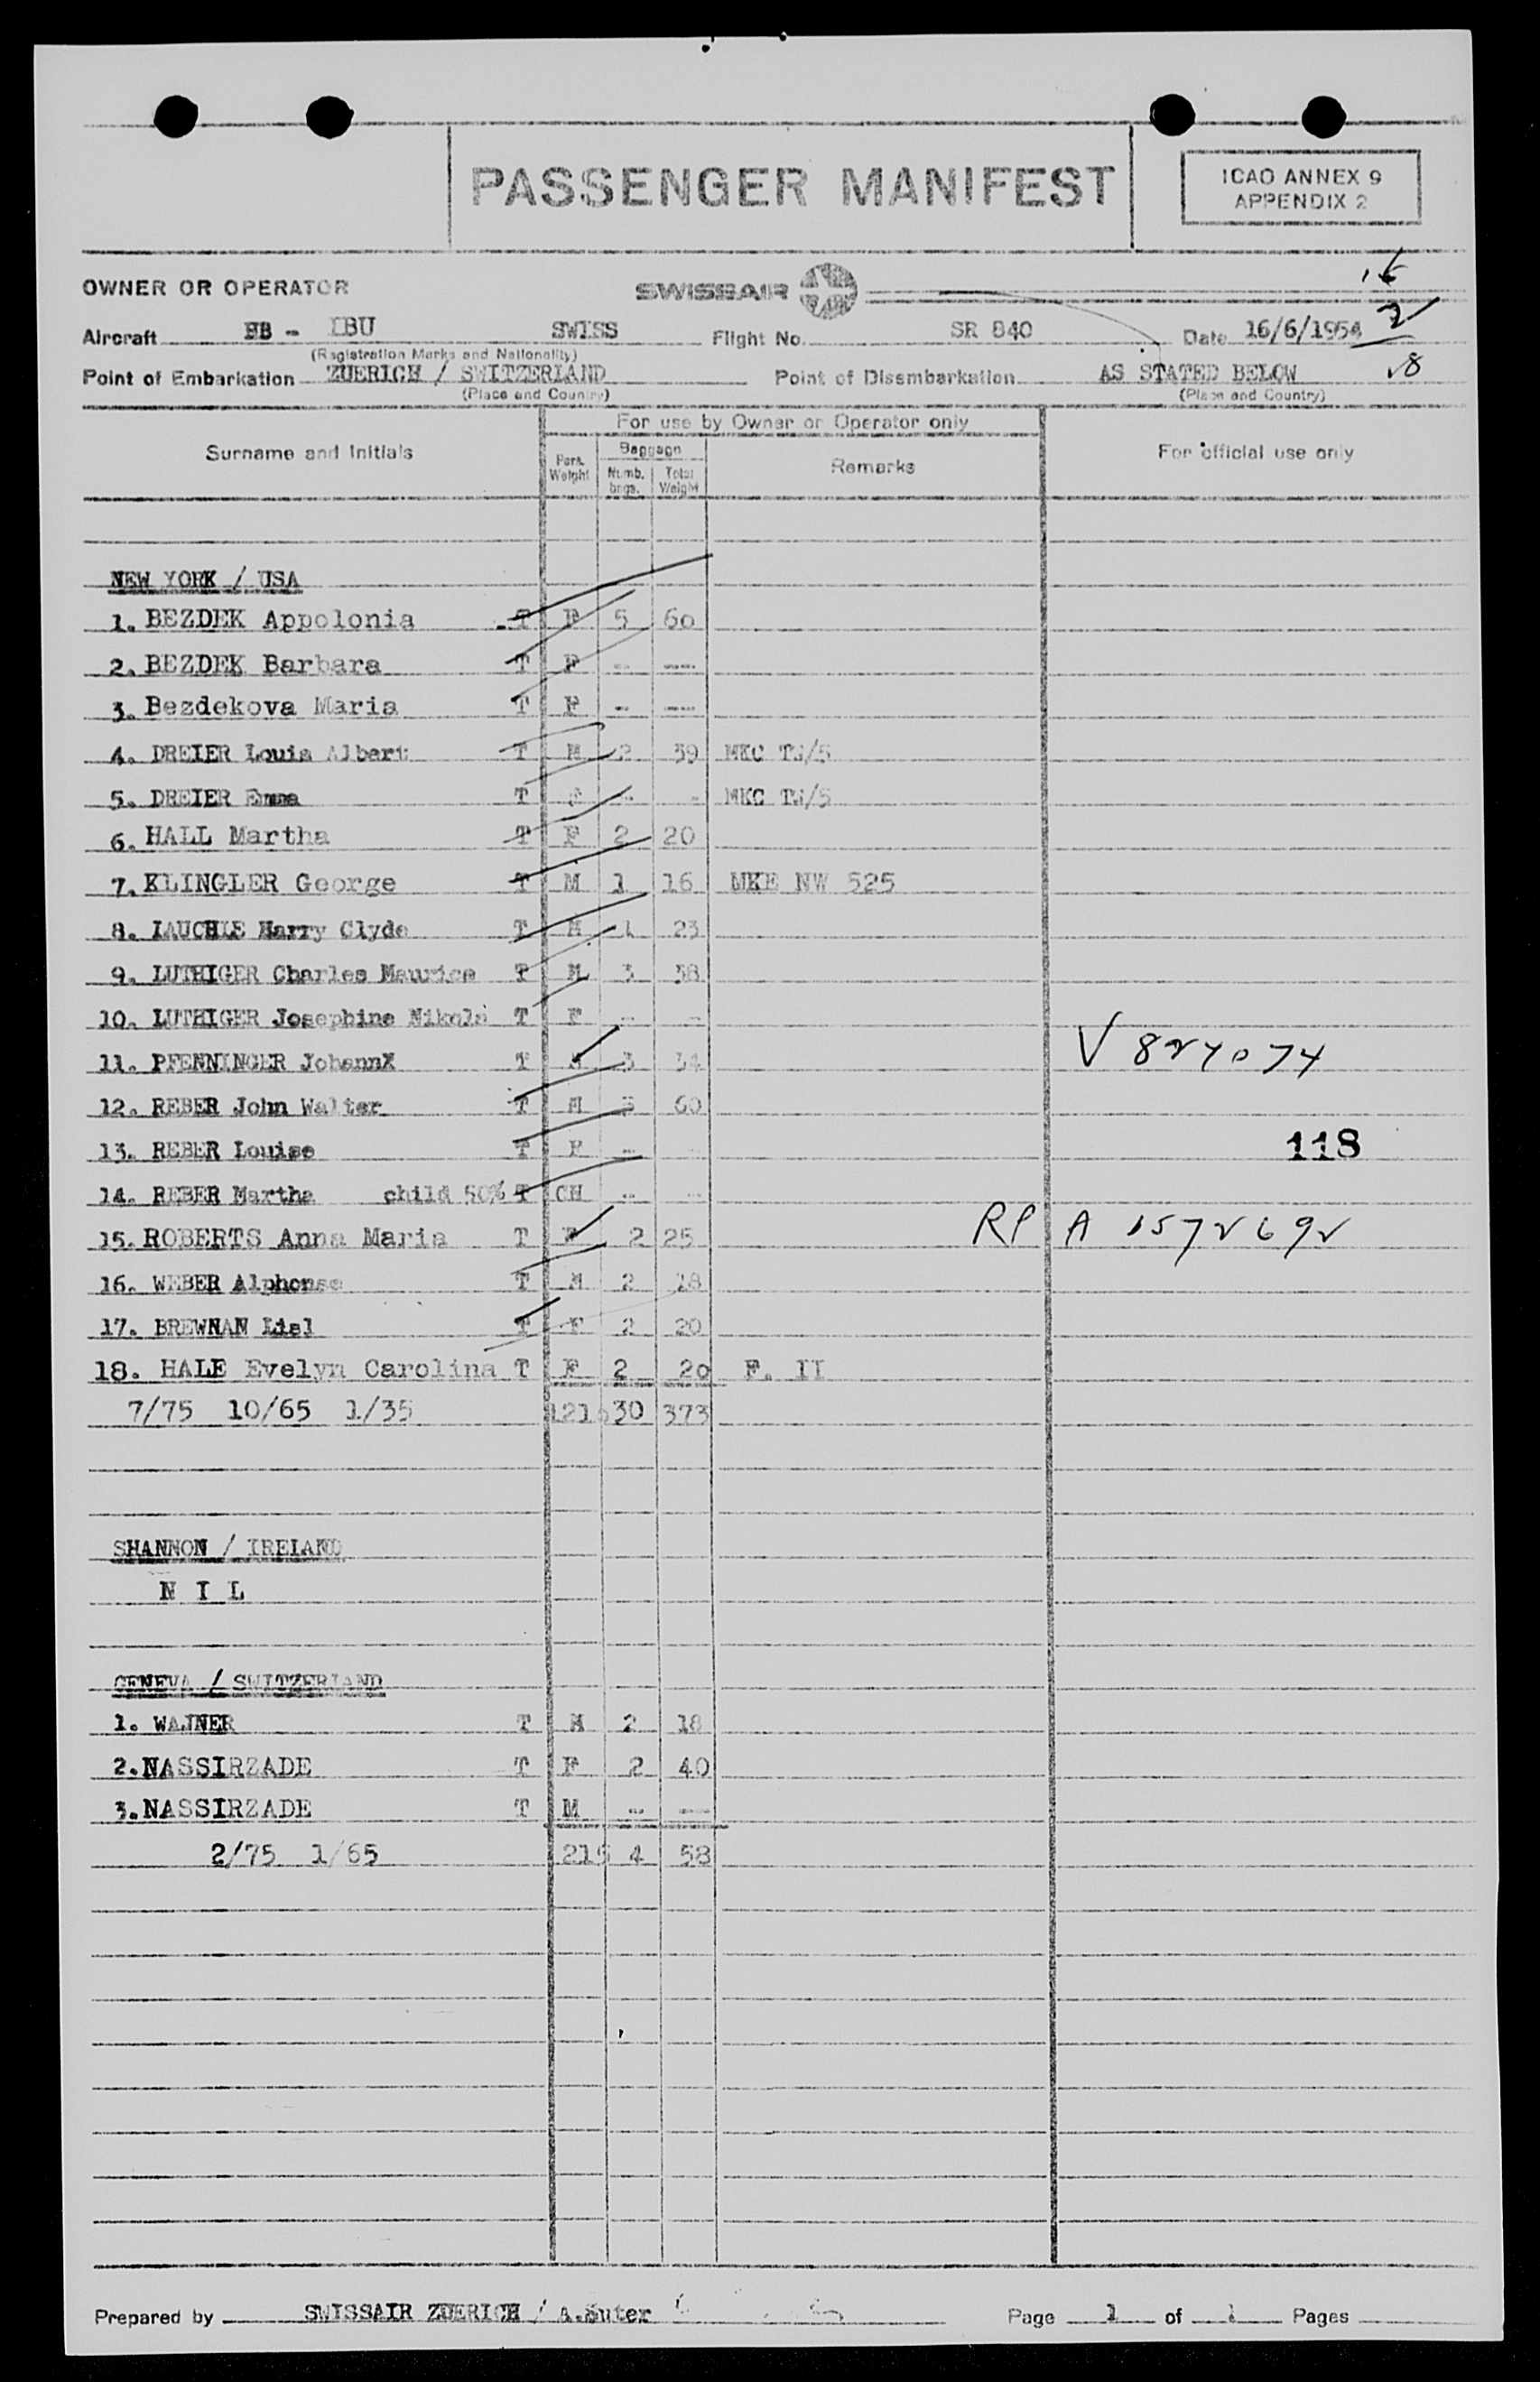 PASSENGER MANIFEST
ICAO ANNEX 9
APPENDIX 2
OWNER OR OPERATOR
SWISSAIR
16
2
18
Aircraft HB - IBU SWISS Flight No. SR 840 Date 16/6/1954
(Registration Marks and Nationality)
Point of Embarkation ZUERICH / SWITZERLAND Point of Disembarkation AS STATED BELOW
(Place and Country) (Place and Country)
Surname and Initials
For use by Owner or Operator only
Pers. Weight
Baggage
Numb. bags.
Total Weight
Remarks
For official use only
NEW YORK / USA
1. BEZDEK Appolonia T F 5 60
2. BEZDEK Barbara T F -- ---
3. Bezdekova Maria T F -- ---
4. DREIER Louis Albert T M 2 39 MKC TW/5
5. DREIER Emma T F - - MKC TW/5
6. HALL Martha T F 2 20
7. KLINGLER George T M 1 16 MKE NW 525
8. LAUCHLE Harry Clyde T M 1 23
9. LUTHIGER Charles Maurice T M 3 38
10. LUTHIGER Josephine Nikola T F - -
11. PFENNINGER JohannX T M 3 34 V 827074
12. REBER John Walter T M 5 60
13. REBER Louise T F -- --
118
14. REBER Martha child 50% T CH -- --
15. ROBERTS Anna Maria T F 2 25 RP A 1572692
16. WEBER Alphonse T M 2 18
17. BREWNAN Liel T F 2 20
18. HALE Evelyn Carolina T F 2 20 F. II
7/75 10/65 1/35 1215 30 373
SHANNON / IRELAND
N I L
GENEVA / SWITZERLAND
1. WAJNER T M 2 18
2. NASSIRZADE T F 2 40
3. NASSIRZADE T M -- ---
2/75 1/65 215 4 58
Prepared by SWISSAIR ZUERICH / A.Suter Page 1 of 1 Pages